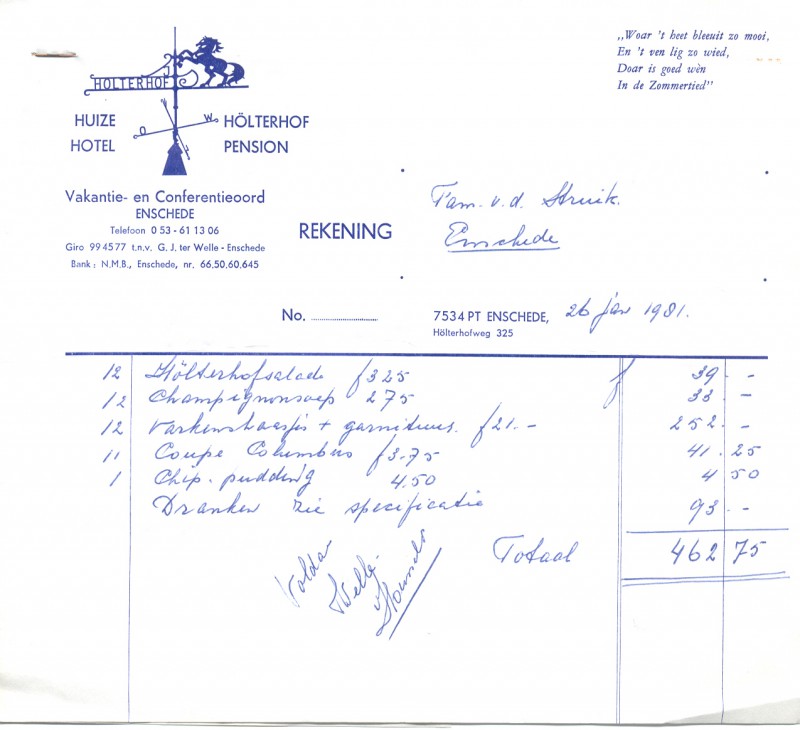 „Woar 't heet bleeuit zo mooi,
En 't ven lig zo wied,
Doar is goed wèn
In de Zommertied"
HOLTERHOF
HUIZE HÖLTERHOF
O W
HOTEL PENSION
Vakantie- en Conferentieoord
ENSCHEDE
Telefoon 0 53 - 61 13 06
Giro 994577 t.n.v. G. J. ter Welle - Enschede
Bank : N.M.B., Enschede, nr. 66.50.60.645
REKENING
Fam. v.d. Struik.
Enschede
No.
7534 PT ENSCHEDE, 26 jan 1981.
Hölterhofweg 325
12 Hölterhofsalade f 3 25 f 39 . -
12 Champignonsoep 2 75 33 . -
12 Varkenshaasjes + garnituur. f 21.- 252 . -
11 Coupe Columbus f 3.75 41 . 25
1 Chip. pudding 4.50 4 50
Dranken zie specificatie 93 . -
Totaal 462 75
Voldaan